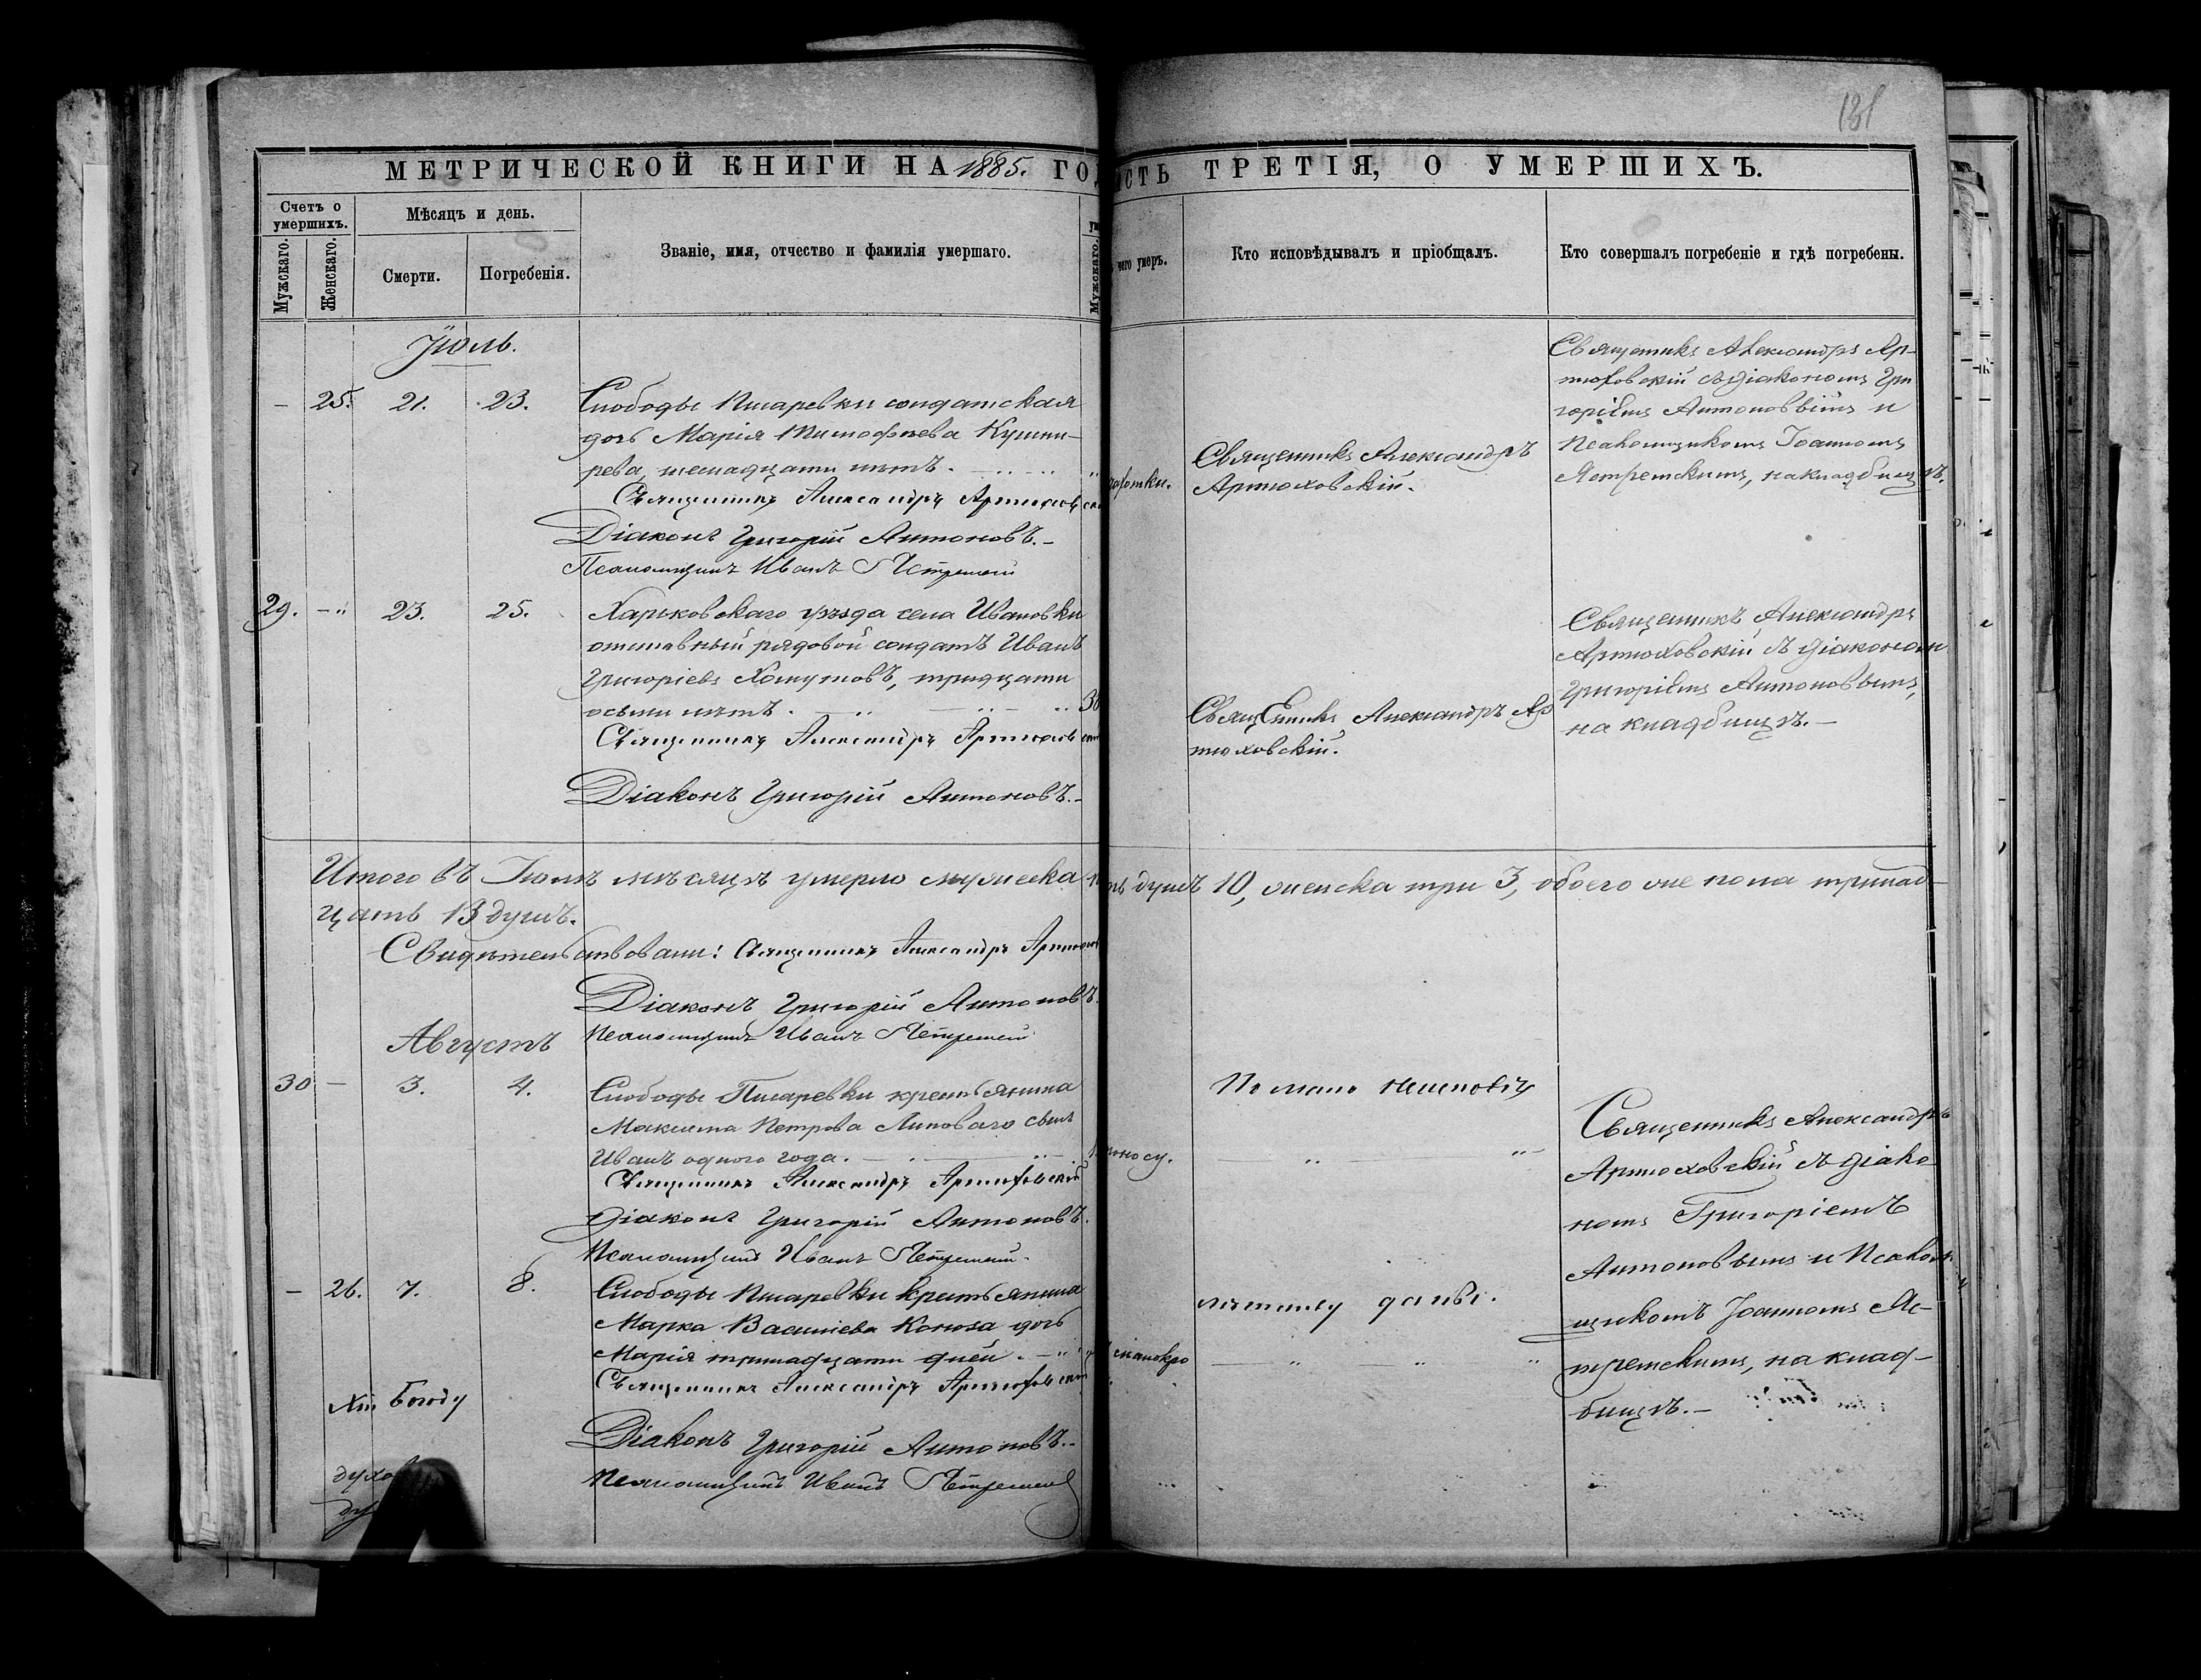 131
МЕТРИЧЕСКОЙ КНИГИ НА 1885. ГО
СТЬ ТРЕТІЯ, О УМЕРШИХЪ.
Счетъ о умершихъ.
Мужскаго.
Женскаго.
Мѣсяцъ и день.
Смерти.
Погребенія.
Званіе, имя, отчество и фамилія умершаго.
Мужскаго.
чего умеръ.
Кто исповѣдывалъ и пріобщалъ.
Кто совершалъ погребеніе и гдѣ погребены.
Іюль.
— 25. 21. 23.
Слободы Писаревки солдатская
дочь Марія Тимофѣева Кушни-
рева,
лѣтъ.
Священникъ Александръ Артюховскі
Діаконъ Григорій Антоновъ.-
Псаломщикъ Иванъ
чахотки.
Священникъ Александръ
Артюховскій.
Священникъ Александръ Ар-
тюховскій съ діакономъ Гри
горіемъ Антоновымъ и
Псаломщикомъ Іоанномъ
на кладбищѣ.
29. — 23. 25.
Харьковскаго уѣзда села Ивановки
отставный рядовой солдатъ Иванъ
Григоріевъ Хомутовъ, тридцати
осьми лѣтъ.
Священникъ Александръ Артюховскі
Діаконъ Григорій Антоновъ.-
Священникъ Александръ Ар
тюховскій.
Священникъ Александръ
Артюховскій съ діакономъ
Григоріемъ Антоновымъ,
на кладбищѣ.—
Итого въ Іюлѣ мѣсяцѣ умерло мужеска
душъ 10, женска три 3, обоего же пола тринад-
цать 13 душъ.
Свидѣтельствовали: Священникъ Александръ Артюхов
Діаконъ Григорій Антоновъ.
Псаломщикъ Иванъ
Августъ
30 — 3. 4.
Слободы Писаревки крестьянина
Максима Петрова Липоваго сынъ
Иванъ одного года.
Священникъ Александръ Артюховскій
Діаконъ Григорій Антоновъ.
Псаломщикъ Иванъ
поносу.
По мало
Священникъ Александръ
Артюховскій съ діако-
номъ Григоріемъ
Антоновымъ и Псалом-
щикомъ Іоанномъ
на клад-
бищѣ.—
— 26. 7. 8.
Слободы Писаревки крестьянина
Марка Василіева дочь
Марія тринадцати дней.
Священникъ Александръ Артюховскі
Діаконъ Григорій Антоновъ.-
Псаломщикъ Иванъ